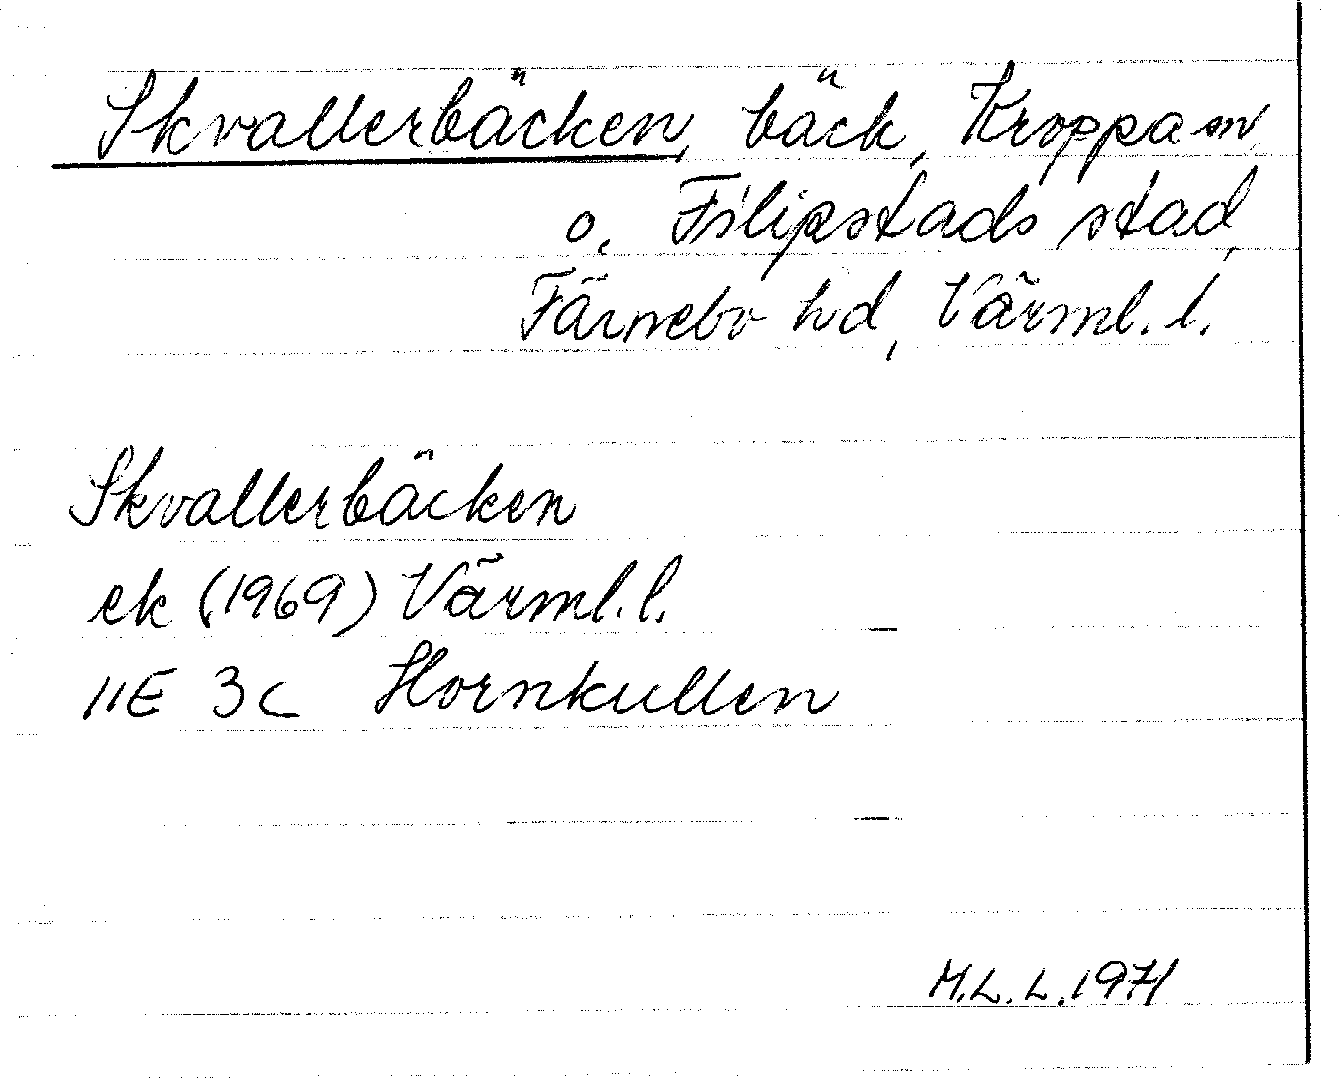 Skvallerbäcken, bäck, Kroppa sn
o. Filipstads stad,
Färnebo hd, Värml. l.
Skvallerbäcken
ek (1969) Värml. l.
11E 3c Hornkullen
M.L.L. 1971